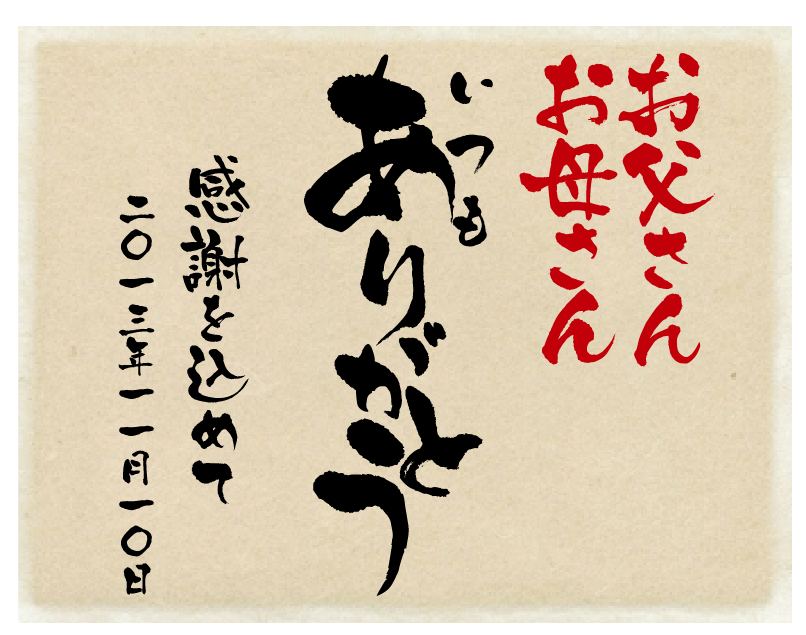 お父さん
お母さん
いつも
ありがとう
感謝を込めて
二〇一三年一一月一〇日